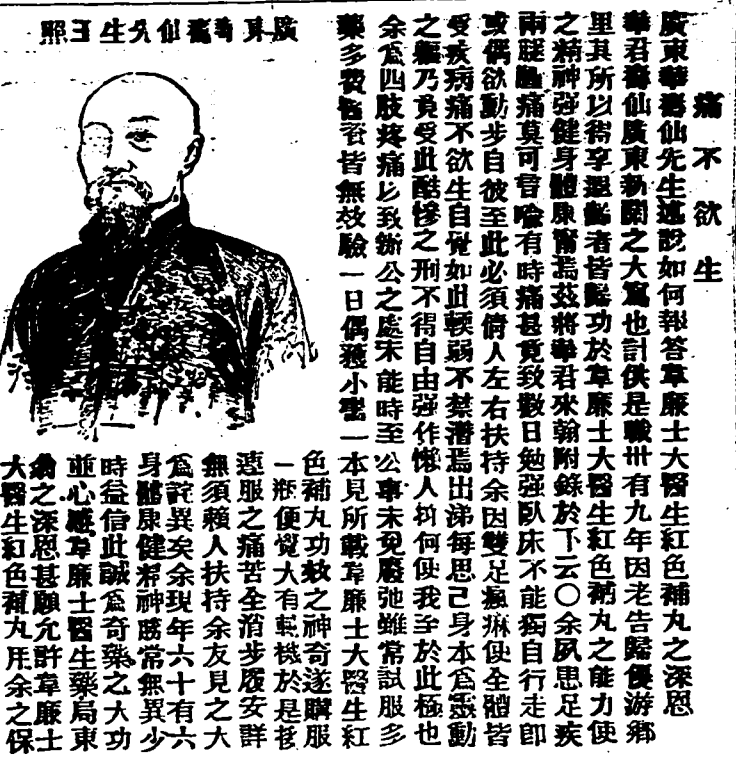 痛不欲生
廣東華壽仙先生述說如何報答韋廉士大醫生紅色補丸之深恩
華君壽仙廣東新關之大寫也計供是職卅有九年因老告歸優游鄉
里其所以得享遐齡者皆歸功於韋廉士大醫生紅色補丸之能力使
之精神强健身體康甯焉茲將華君來翰附錄於下云〇余夙患足疾
兩腿酸痛莫可言喻有時痛甚竟致數日勉强臥床不能獨自行走即
或偶欲動步自彼至此必須倚人左右扶持余因雙足瘋痳使全體皆
受疾病痛不欲生自覺如此輭弱不禁潸焉出涕每思己身本為靈動
之軀乃竟受此酷慘之刑不得自由强作懶人抑何使我至於此極也
余為四肢疼痛以致辦公之處未能時至公事未免廢弛雖常試服多
藥多費醫資皆無效驗一日偶獲小書一本見所載韋廉士大醫生紅
色補丸功效之神奇遂購服
一瓶便覺大有轉機於是接
連服之痛苦全消步履安群
無須賴人扶持余友見之大
為詫異矣余現年六十有六
身體康健精神勝常無異少
時益信此誠為奇藥之大功
並心感韋廉士醫生藥局東
翁之深恩甚願允許韋廉士
大醫生紅色補丸用余之保
廣東華壽仙先生玉照